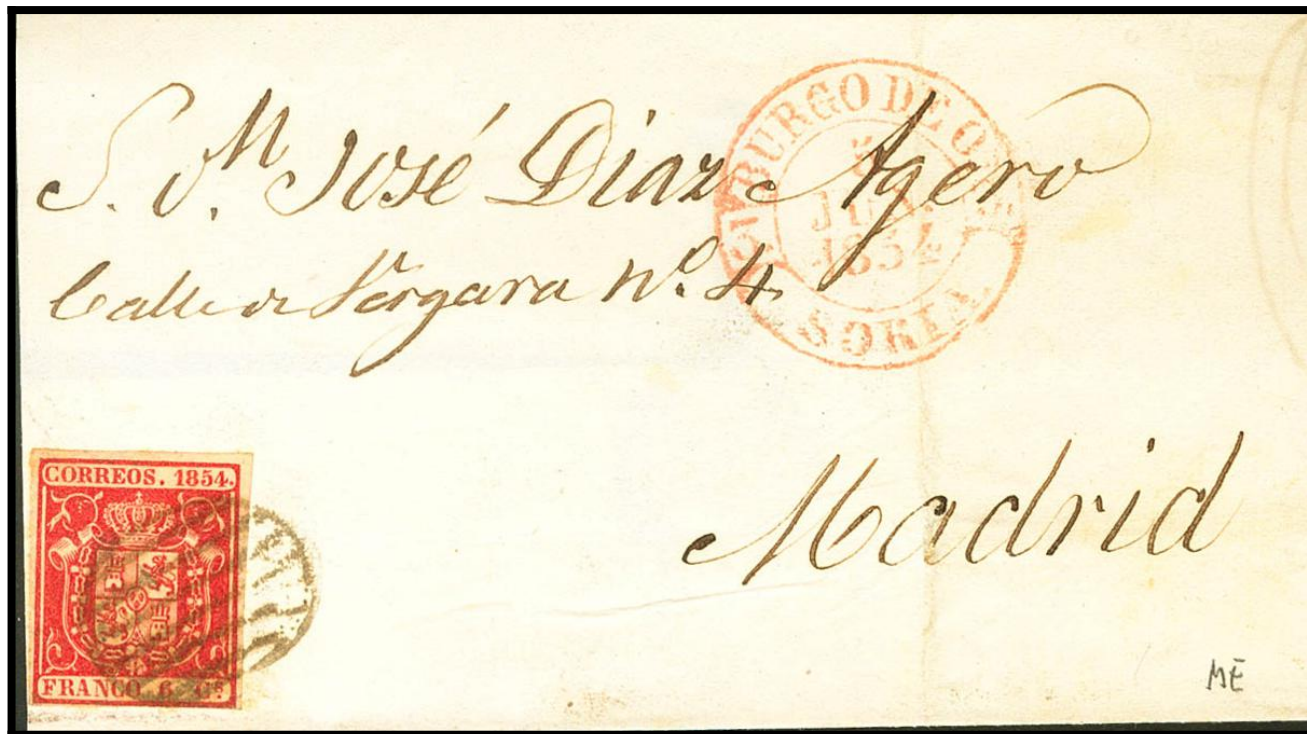 S. D.ⁿ José Diaz Agero
Calle de Vergara Nº. 4.
BURGO DE O
5
JUN.
1854
SORIA
Madrid
CORREOS. 1854.
FRANCO 6 Cˢ
ME